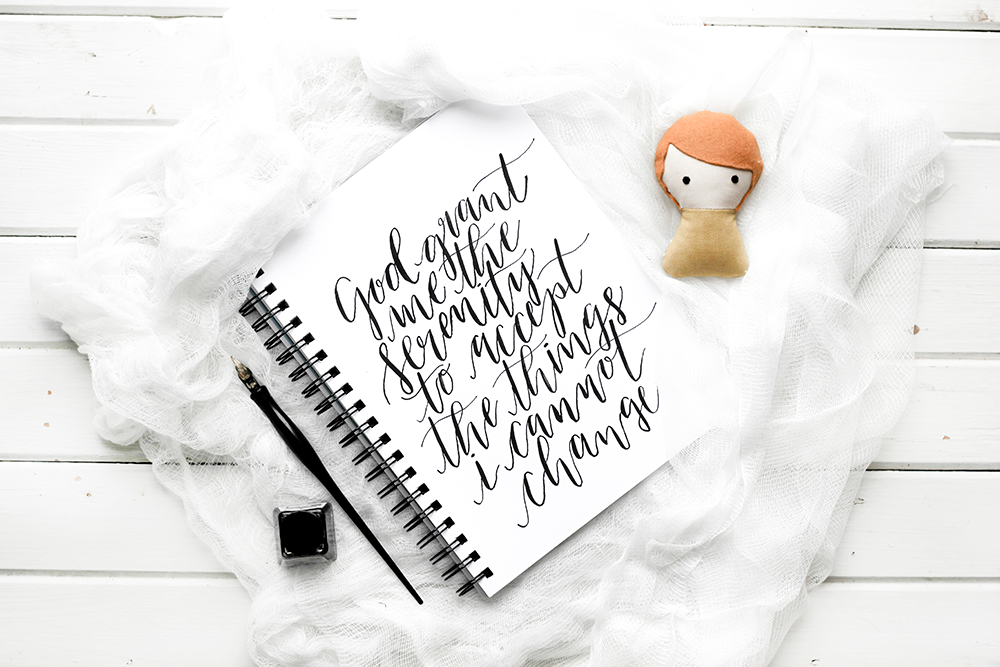 God grant
me the
serenity
to accept
the things
i cannot
change